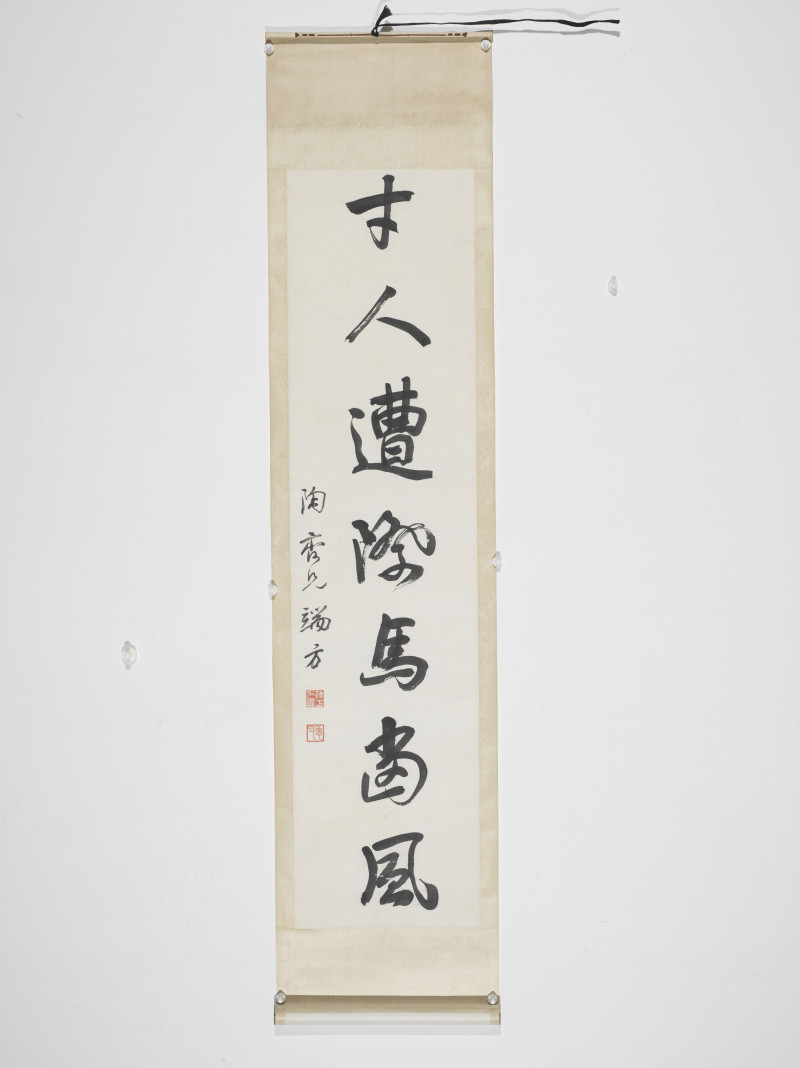 才人遭際馬當風
陶齋兄端方